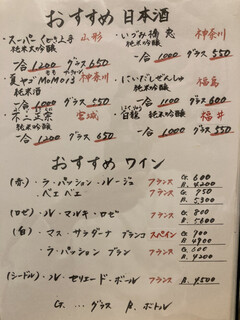 おすすめ 日本酒
・スーパー くどき上手 山形
純米吟醸
一合 1200 グラス 650
・いづみ橋 恵 神奈川
純米吟醸
一合 1000 グラス 550
・夏ヤゴ MOMO13 神奈川
純米酒
一合 1000 グラス 550
・にいだしぜんしゅ 福島
純米吟醸
一合 1100 グラス 600
・不二正宗 宮城
純米吟醸
一合 1200 グラス 650
・白龍 福井
純米吟醸
一合 1000 グラス 550
おすすめ ワイン
(赤)・ラ・パッション・ルージュ フランス G. 600
B. 4200
・ベェベェ フランス G. 750
B. 5300
(ロゼ)・ル・マルキ・ロゼ フランス G. 800
B. 5600
(白)・マス・サラダーナ ブランコ スペイン G. 700
B. 4900
・ラ・パッション ブラン フランス G. 600
(シードル)・ル・セリエード・ボール フランス B. 4500
G. … グラス B. ボトル